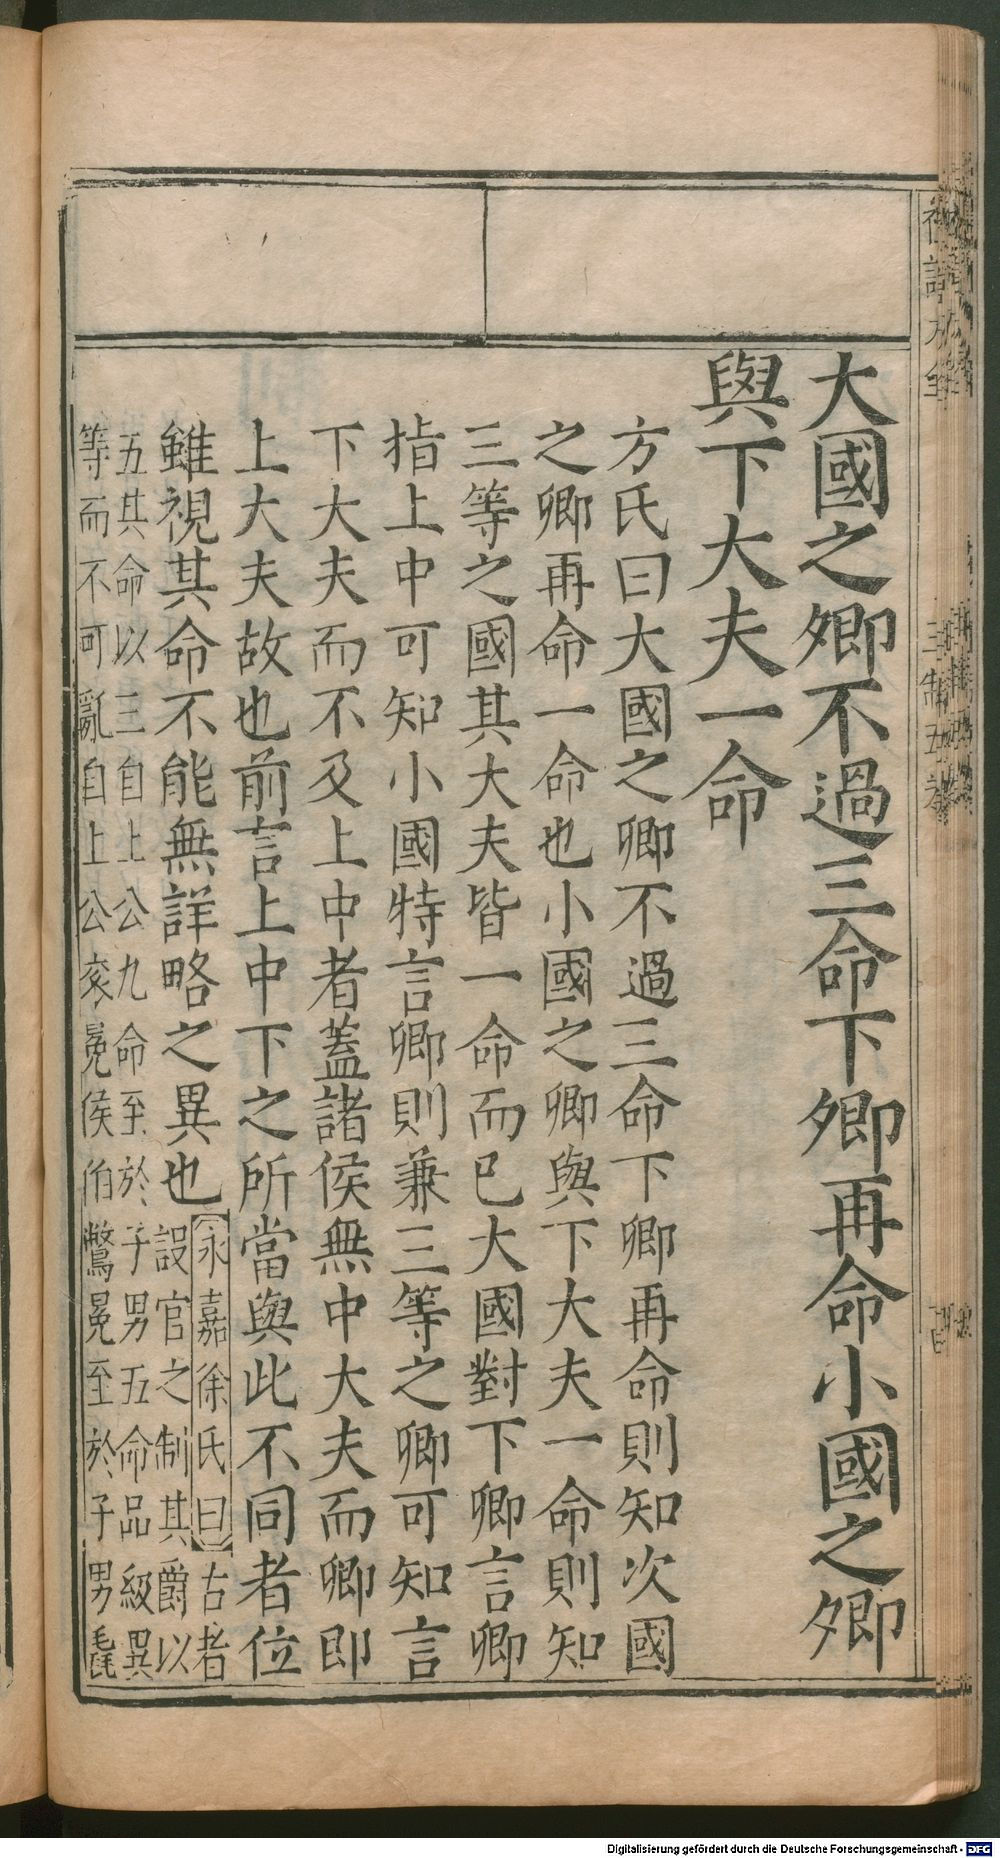 大國之卿不過三命下卿再命小國之卿
與下大夫一命
方氏曰大國之卿不過三命下卿再命則知次國
之卿再命一命也小國之卿與下大夫一命則知
三等之國其大夫皆一命而已大國對下卿言卿
指上中可知小國特言卿則兼三等之卿可知言
下大夫而不及上中者蓋諸侯無中大夫而卿即
上大夫故也前言上中下之所當與此不同者位
雖視其命不能無詳略之異也
永嘉徐氏曰古者
設官之制其爵以
五其命以三自上公九命至於子男五命品級異
等而不可亂自上公袞冕侯伯鷩冕至於子男毳
Digitalisierung gefördert durch die Deutsche Forschungsgemeinschaft - DFG